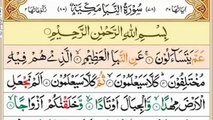 (٧٨) سُوْرَةُ النَّبَاِ مَكِّيَّةٌ (٨٠)
بِسْمِ اللّٰهِ الرَّحْمٰنِ الرَّحِيْمِ
عَمَّ يَتَسَآءَلُوْنَ عَنِ النَّبَاِ الْعَظِيْمِ الَّذِيْ هُمْ فِيْهِ
مُخْتَلِفُوْنَ كَلَّا سَيَعْلَمُوْنَ ثُمَّ كَلَّا سَيَعْلَمُوْنَ اَلَمْ نَجْعَلِ
الْاَرْضَ مِهٰدًا وَّالْجِبَالَ اَوْتَادًا وَّخَلَقْنٰكُمْ اَزْوَاجًا